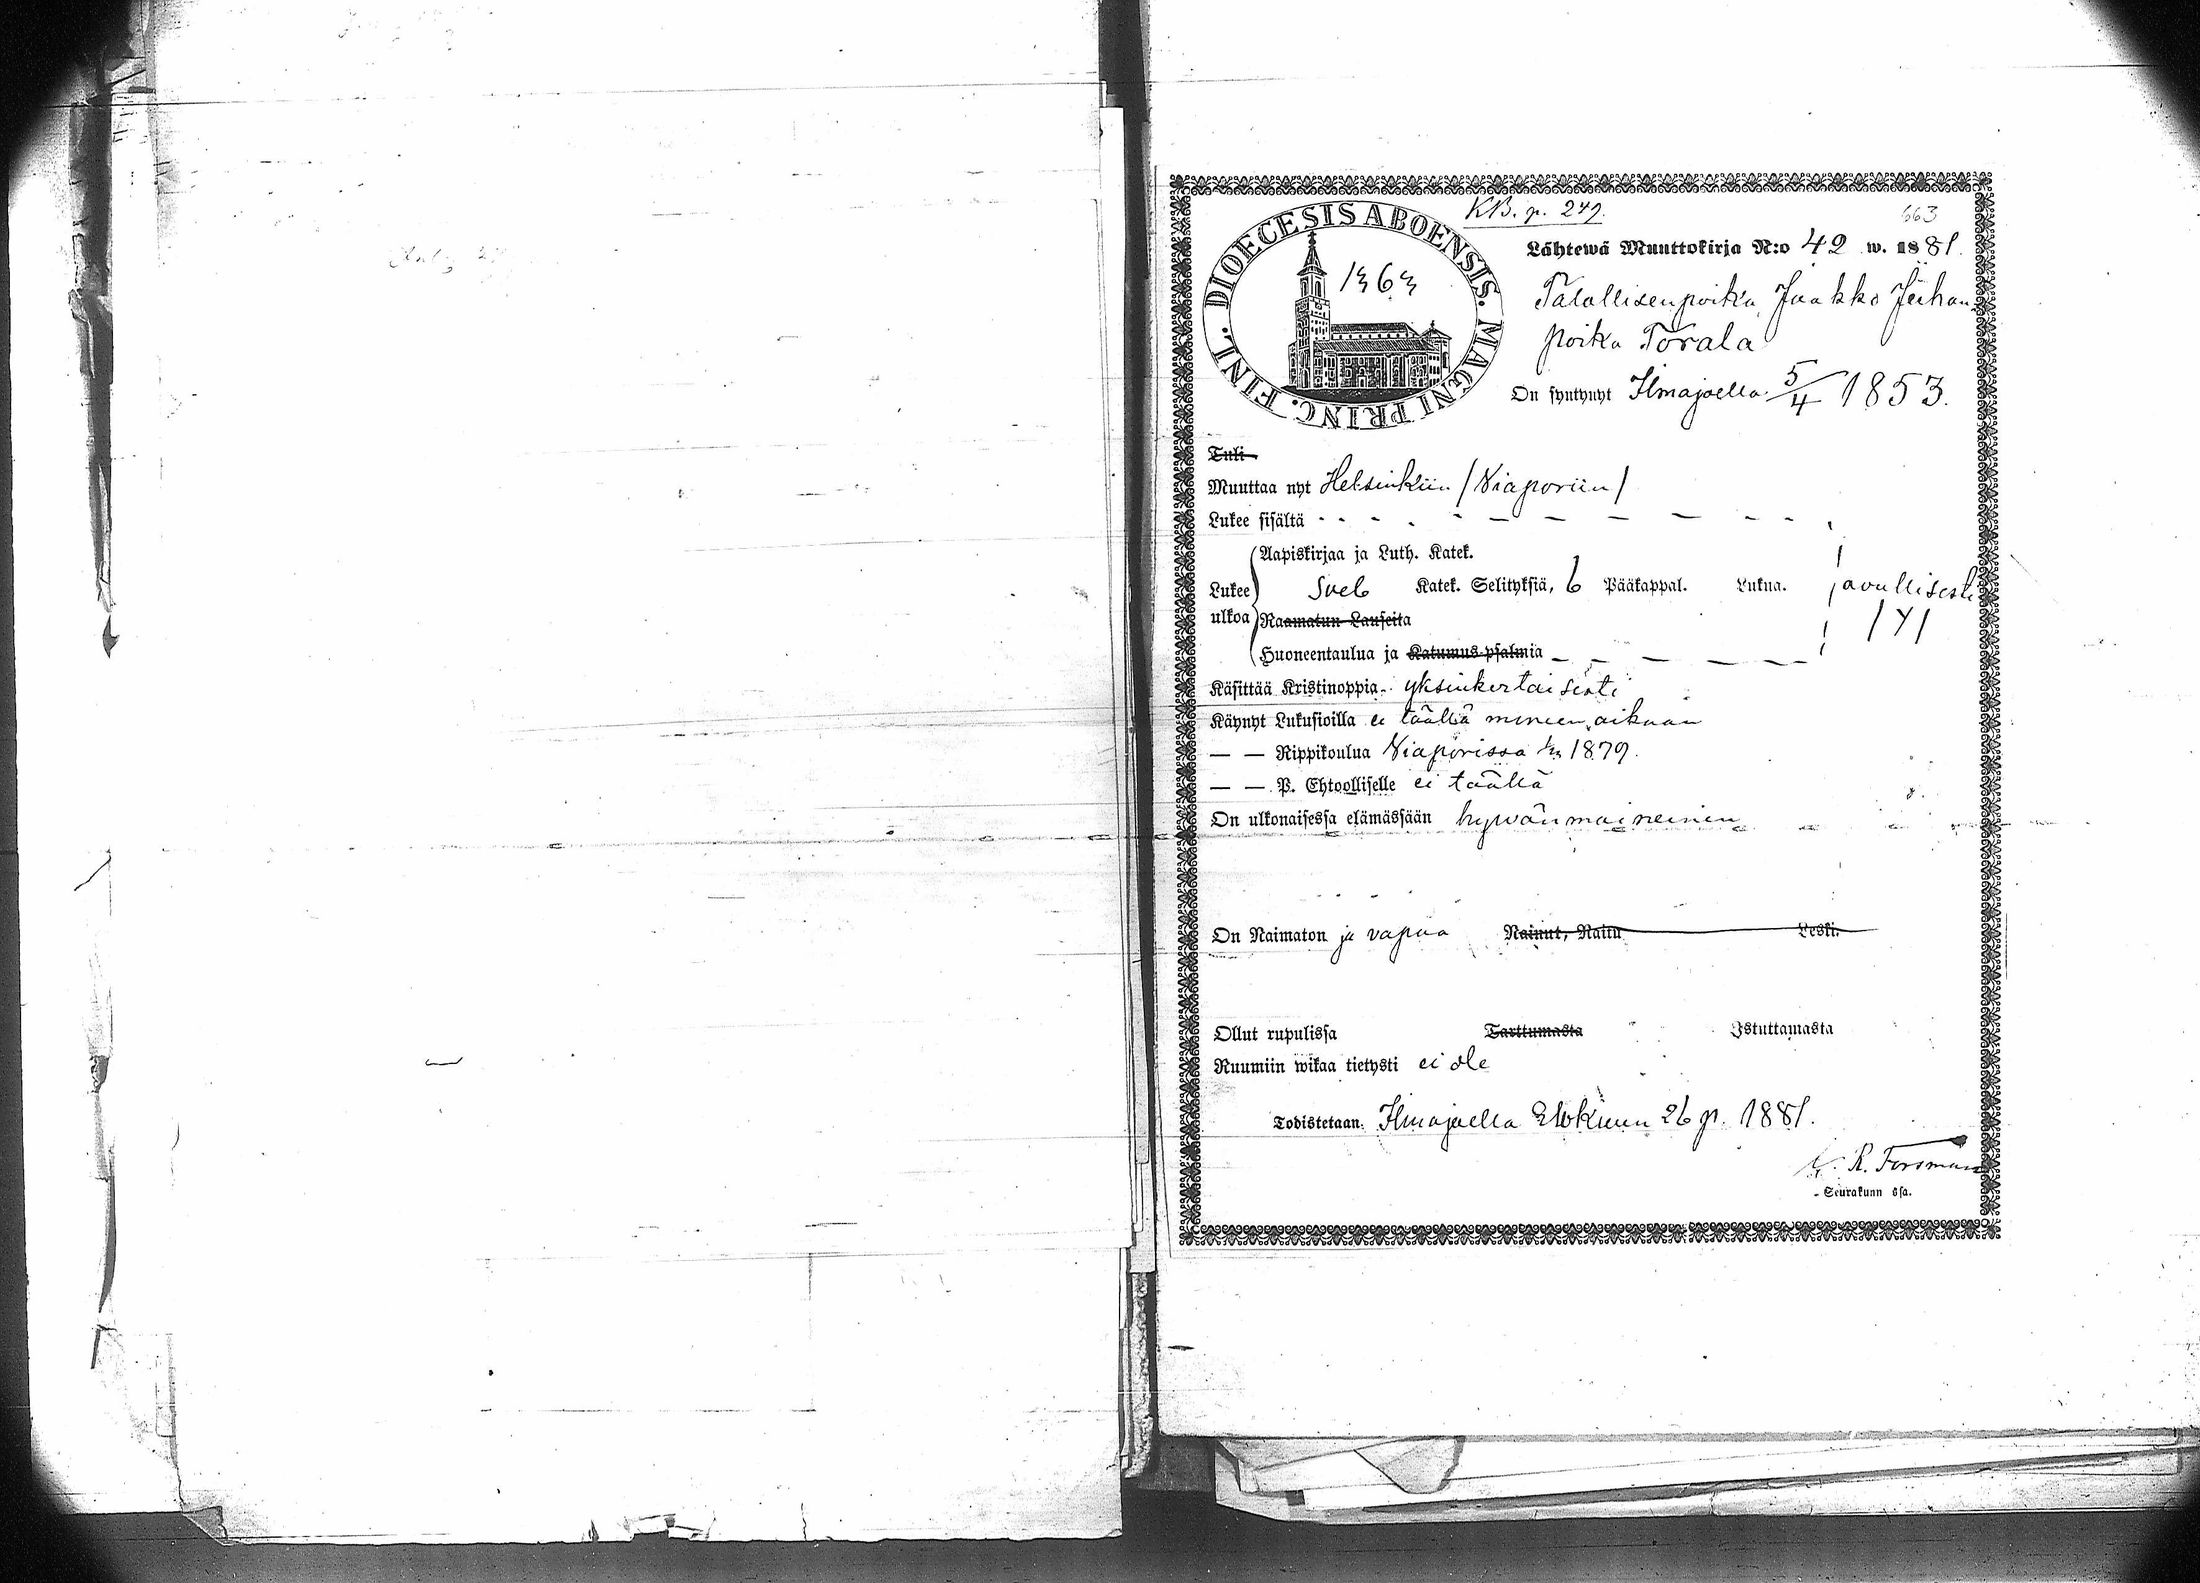 KB. p. 249.
663
DIOECESIS ABOENSIS. MAGNI PRINC. FINL.
1363
Lähtewä Muuttokirja N:o 42 w. 1881.
Talollisenpoika Jaakko Juhan
poika Torala
On syntynyt Ilmajoella 5/4 1853.
Tuli
Muuttaa nyt Helsinkiin /Viaporiin/
Lukee sisältä
Aapiskirjaa ja Luth. Katek.
Lukee ulkoa Sveb Katek. Selityksiä, 6 Pääkappal. Lukua.
Raamatun Lauseita
Huoneentaulua ja Katumus-psalmia
Käsittää Kristinoppia yksinkertaisesti
Käynyt Lukusioilla ei täällä aikaan
— — Rippikoulua Viaporissa 1879.
— — P. Ehtoolliselle ei täällä
On ulkonaisessa elämässään hywänmaineinen
On Naimaton ja vapaa Nainut, Naitu Leski.
Ollut rupulissa Tarttumasta Istuttamasta
Ruumiin wikaa tietysti ei ole
Todistetaan. Ilmajoella Elokuun 26 p. 1881.
K. R. Forsman
Seurakunn ssa.